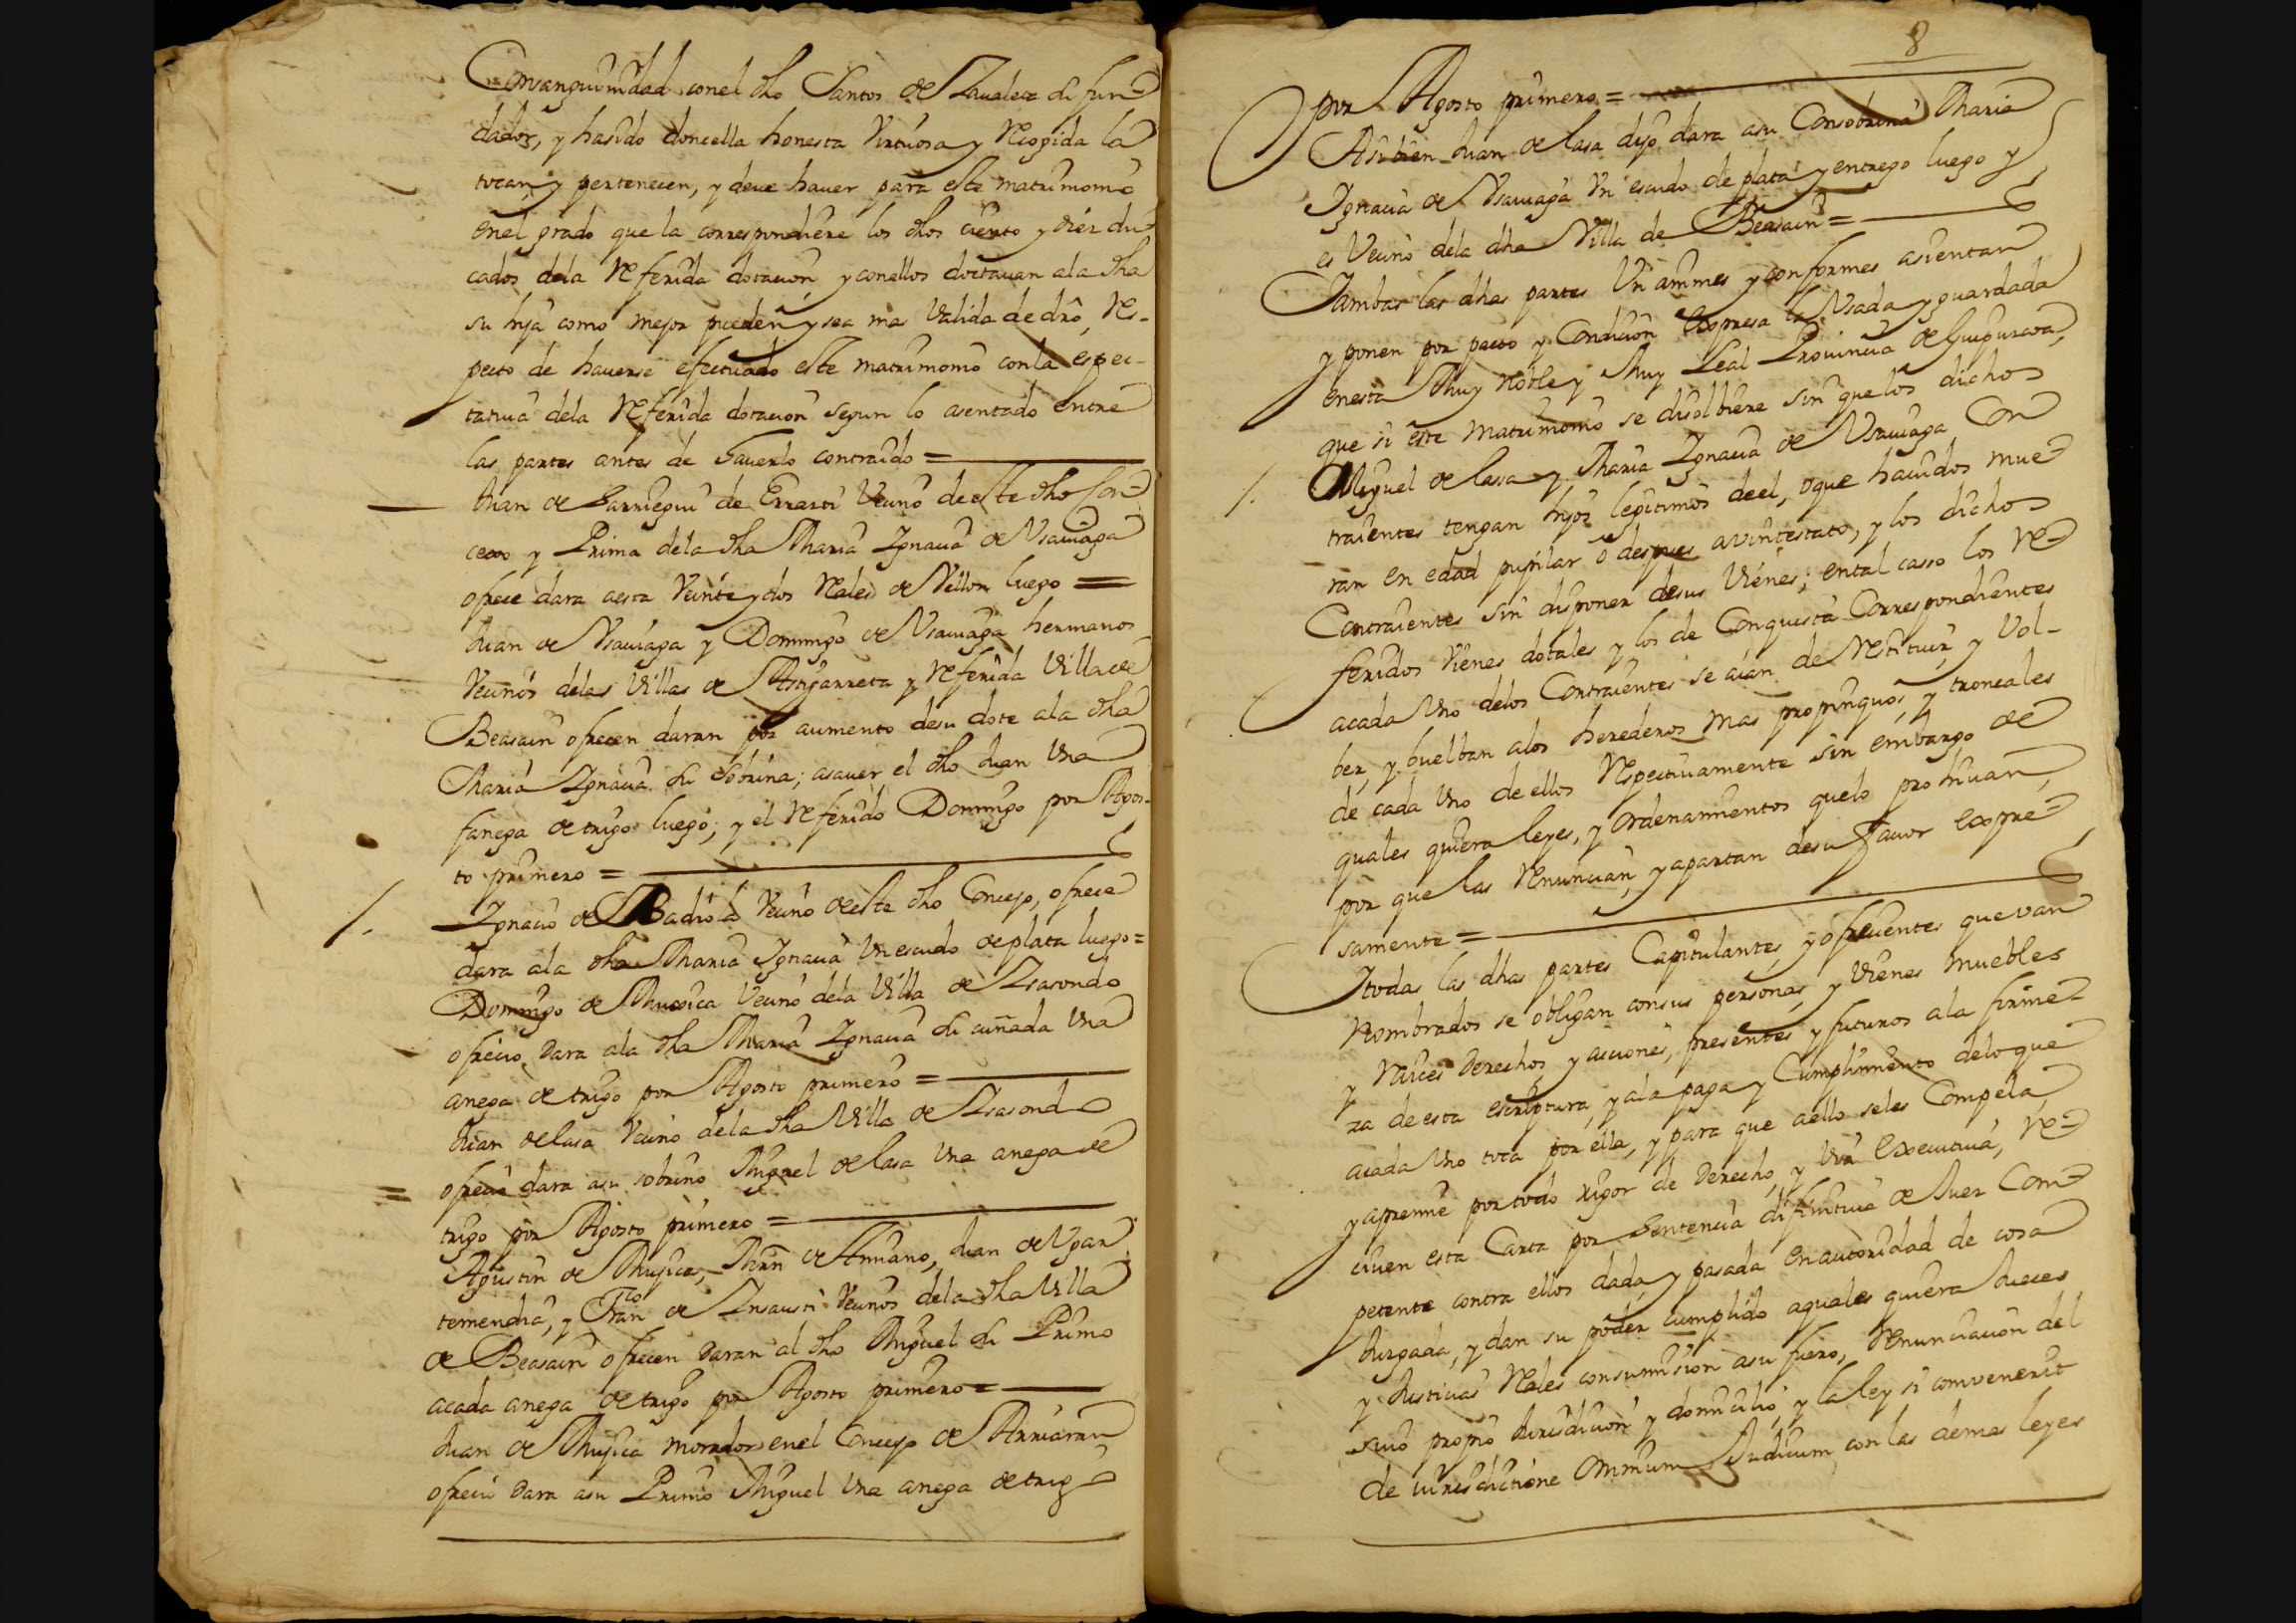 Consanguinidad con el dho Santos de Zaualeta su fun-
dador, y hasido doncella honesta Virtuosa y Recogida la
tocan y pertenecen, y deue hauer para este matrimonio
enel grado que la correspondiere los dhos ciento y diez du-
cados dela Referida dotacion, y conellos doctauan ala dha
su hija como mejor pueden y sea mas Valida de dro, Res-
pecto de hauerse efectuado este matrimonio conla espec-
tatiua dela Referida dotacion segun lo asentado entre
las partes antes de hauerlo contraido =
Juan de Barriegui de Errarti Vecino de este dho Con-
cexo y Prima dela dha Maria Ignacia de Vsauiaga
ofrece dara aesta Veinte y dos Reales de Vellon luego =
Juan de Vsauiaga y Domingo de Vsauiaga hermanos
Vecinos delas Villas de Astigarreta y Referida Villa de
Beasain ofrecen daran por aumento desu dote ala dha
Maria Ignacia su Sobrina; asauer el dho Juan Vna
fanega de trigo luego; y el Referido Domingo por Agos-
to primero =
Ignacio de Badiola Vecino de este dho Concejo, ofrece
dara ala dha Maria Ignacia Vn escudo de plata luego =
Domingo de Muxica Vecino dela Villa de Isasondo
ofrecio dara ala dha Maria Ignacia su cuñada Vna
anega de trigo por Agosto primero =
Juan de lasa Vecino dela dha Villa de Isasondo
ofrecio dara asu sobrino Miguel de lasa Vna anega de
trigo por Agosto primero =
Agustin de Mujica, Mrn de Amiano, Juan de Vgar-
temendia, y Franco de Insausti Vecinos dela dha Villa
de Beasain ofrecen daran al dho Miguel su Primo
acada anega de trigo por Agosto primero =
Juan de Mujica morador enel Concejo de Arriaran
ofrecio dara asu Primo Miguel Vna anega de trigo
8
por Agosto primero =
Asibien Juan de lasa dijo dara asu Consobrina Maria
Ignacia de Vsauiaga Vn escudo de plata y entrego luego y
es Vecino dela dha Villa de Beasain =
Iambas las dhas partes Vnanimes y conformes asientan
y ponen por pacto y Condicion Expresa la Vsada y guardada
enesta Muy Noble y Muy Leal Prouincia de Guipuzcoa,
que si este Matrimonio se disolbiere sin que los dichos
Miguel de lasa y Maria Ignacia de Vsauiaga Con-
traientes tengan hijos legitimos deel, o que hauidos mue-
ran en edad pupilar o despues avintestato, y los dichos
Contraientes sin disponer desus Vienes; ental casso los Re-
feridos Vienes dotales y los de Conquista Correspondientes
acada Vno delos Contraientes se aian de Restituir, y Vol-
ber, y buelban alos herederos mas propinquos, y troncales
de cada Vno de ellos Respectiuamente sin embargo de
quales quiera leyes, y ordenamientos quelo prohiuan,
por que las Renuncian, y apartan desu fauor Expre-
samente =
Itodas las dhas partes Capitulantes, y ofrecientes que van
Nombrados se obligan consus personas, y Vienes muebles
y Raices Derechos y acciones, presentes y futuros ala firme-
za de esta escriptura, y ala paga y Cumplimiento delo que
acada Vno toca por ella, y para que aello seles Compela,
y apremie por todo rigor de Derecho, y Via Executiua, Re-
ciuen esta Carta por Sentencia difinitiua de Juez Com-
petente contra ellos dada, y pasada en autoridad de cosa
Juzgada, y dan su poder cumplido aquales quiera Jueces
y Justicias Reales consumision asu fuero, Renunciacion del
suio propio Jurisdicion y domicilio, y la ley si convenerit
de iurisdictione Omnium Judicum con las demas leyes